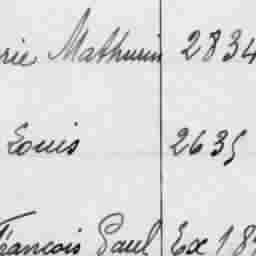 rie Mathurin 2834
Louis 2635
François Paul Ex 183